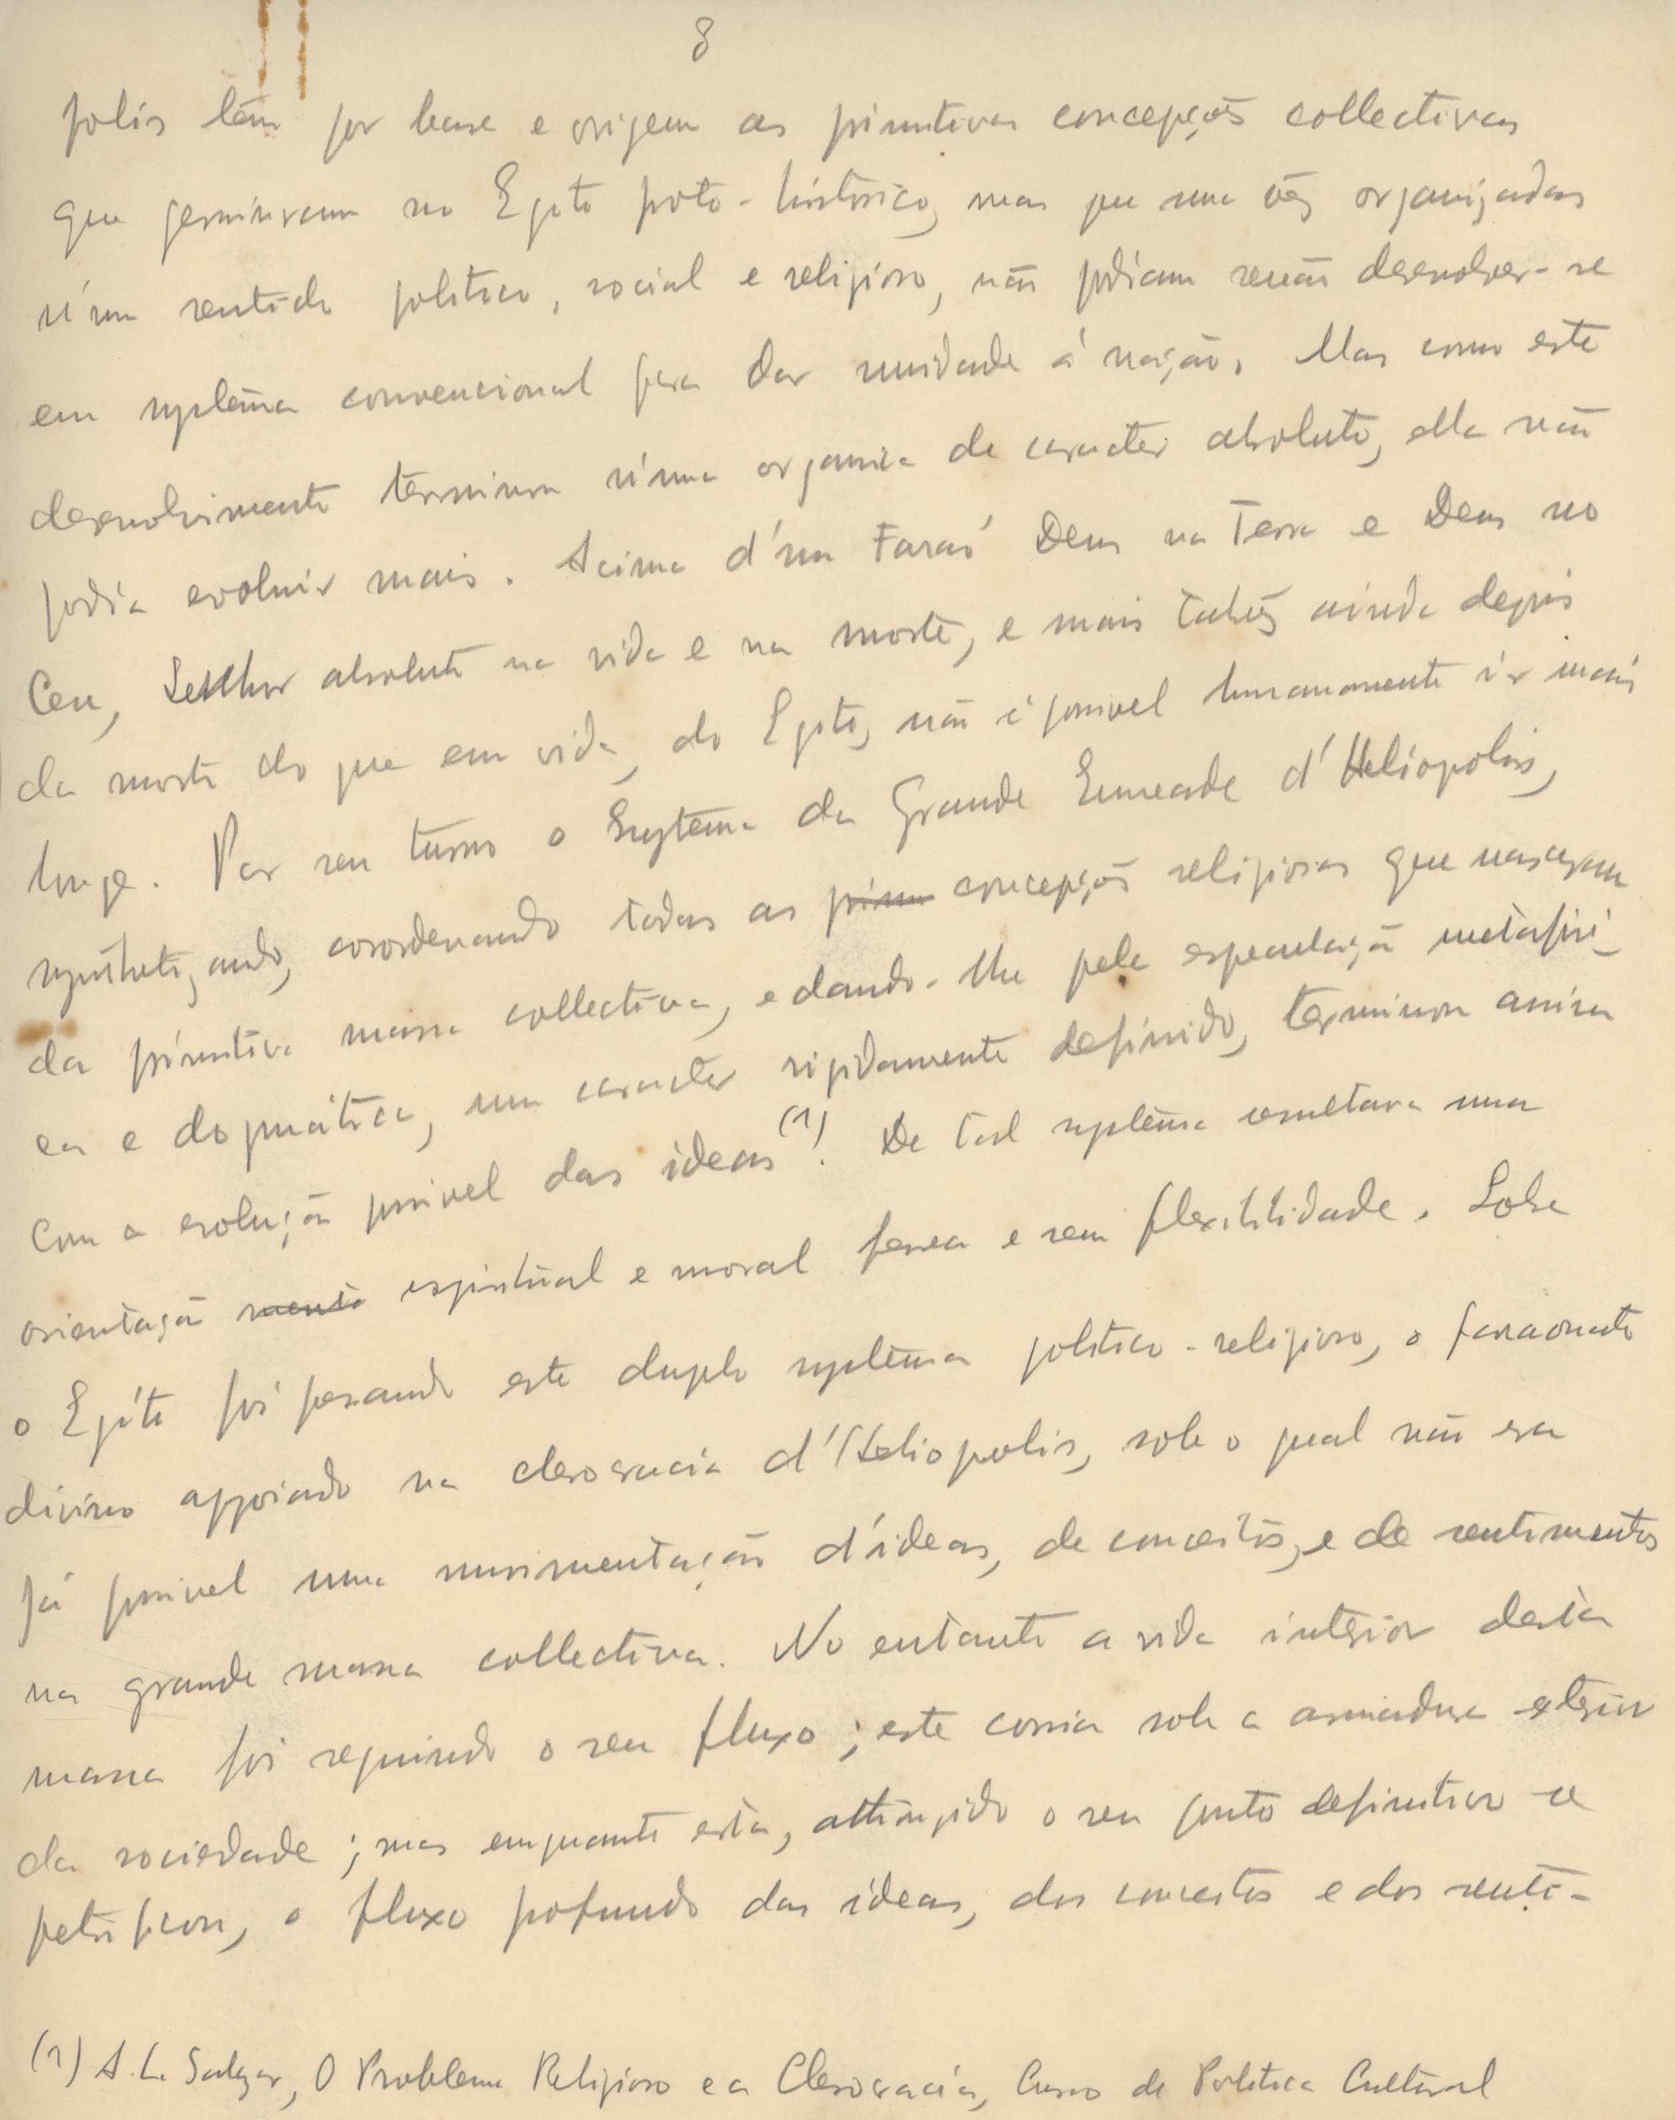 8
polis têm por base e origem as primitivas concepções collectivas
que germinaram no Egito proto-histórico, mas que uma vês organizadas
n'um sentido politico, social e religioso, não podiam senão desenvolver-se
em systêma convencional para dar unidade á nação. Mas como este
desenvolvimento terminou n'uma organica de caracter absoluto, ella não
podia evoluir mais. Acima d'um Faraó Deus na Terra e Deus no
Ceu, Senhor absoluto na vida e na morte, e mais talvês ainda depois
da morte do que em vida, do Egito, não é possivel humanamente ir mais
longe. Por seu turno o Systema da Grande Enneade d'Heliopolis,
synthetizando, coordenando todas as prim concepções religiosas que nasceram
da primitiva massa collectiva, e dando-lhe pela especulação metafisi-
ca e dogmática, um caracter rigidamente definido, terminou assim
com a evolução possivel das ideas (1). De tal systêma resultara uma
orientação mente espiritual e moral ferrea e sem flexibilidade. Sobre
o Egito foi pesando este duplo systêma politico-religioso, o faraonato
divino appoiado na clerocracia d'Heliopolis, sob o qual não era
já possivel uma movimentação d'ideas, de conceitos, e de sentimentos
na grande massa collectiva. No entanto a vida interior desta
massa foi seguindo o seu fluxo; este corria sob a armadura exterior
da sociedade; mas emquanto esta, attingido o seu ponto definitivo se
petrificou, o fluxo profundo das ideas, dos conceitos e dos senti-
(1) A. L. Salazar, O Problema Religioso e a Clerocracia, Curso de Politica Cultural